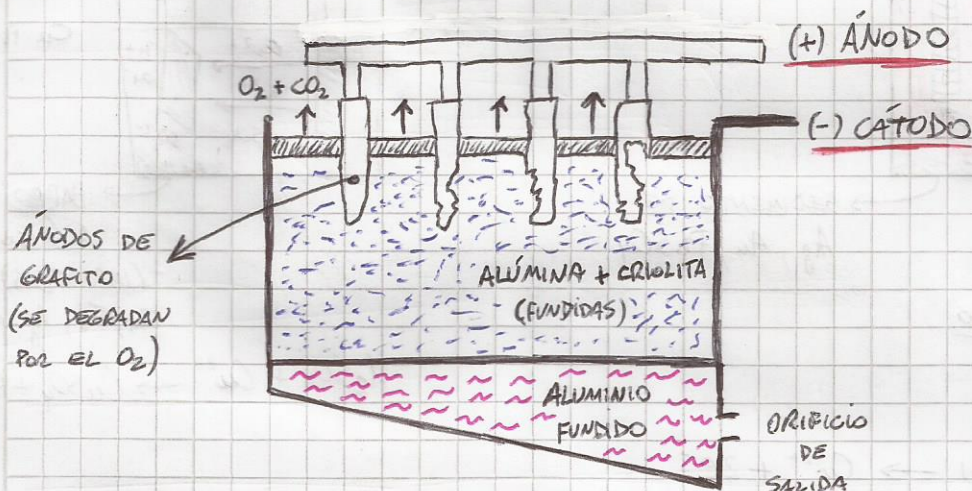 (+) ÁNODO
O₂ + CO₂
(-) CÁTODO
ÁNODOS DE
GRAFITO
(SE DEGRADAN
POR EL O₂)
ALÚMINA + CRIOLITA
(FUNDIDAS)
ALUMINIO
FUNDIDO
ORIFICIO
DE
SALIDA